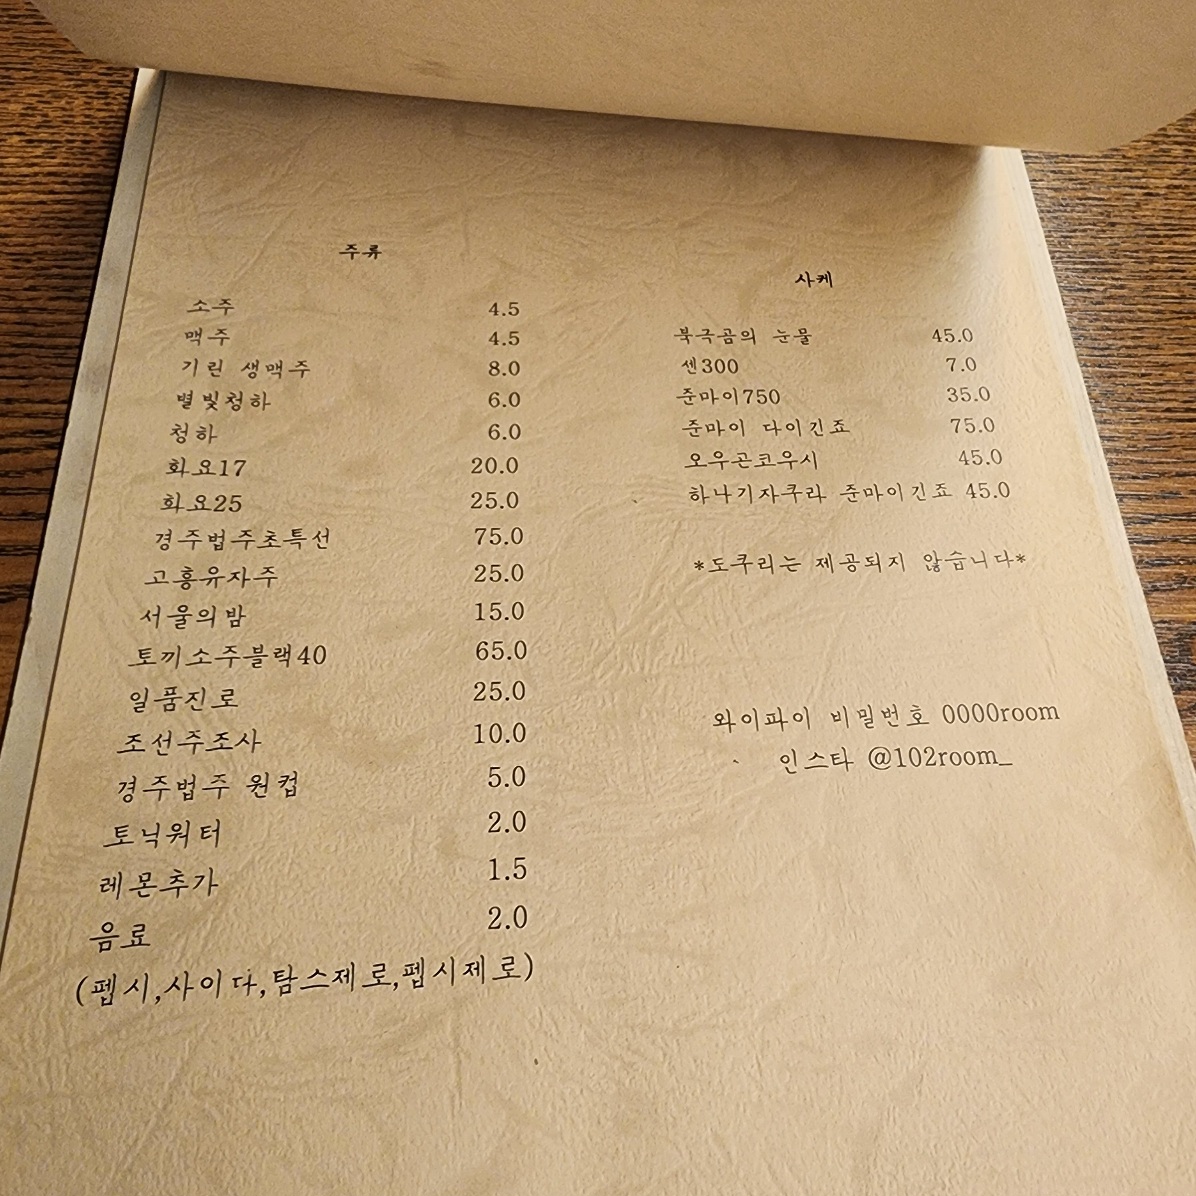 주류
소주 4.5
맥주 4.5
기린 생맥주 8.0
별빛청하 6.0
청하 6.0
화요17 20.0
화요25 25.0
경주법주초특선 75.0
고흥유자주 25.0
서울의밤 15.0
토끼소주블랙40 65.0
일품진로 25.0
조선주조사 10.0
경주법주 원컵 5.0
토닉워터 2.0
레몬추가 1.5
음료 2.0
(펩시,사이다,탐스제로,펩시제로)
사케
북극곰의 눈물 45.0
센300 7.0
준마이750 35.0
준마이 다이긴죠 75.0
오우곤코우시 45.0
하나기자쿠라 준마이긴죠 45.0
*도쿠리는 제공되지 않습니다*
와이파이 비밀번호 0000room
인스타 @102room_